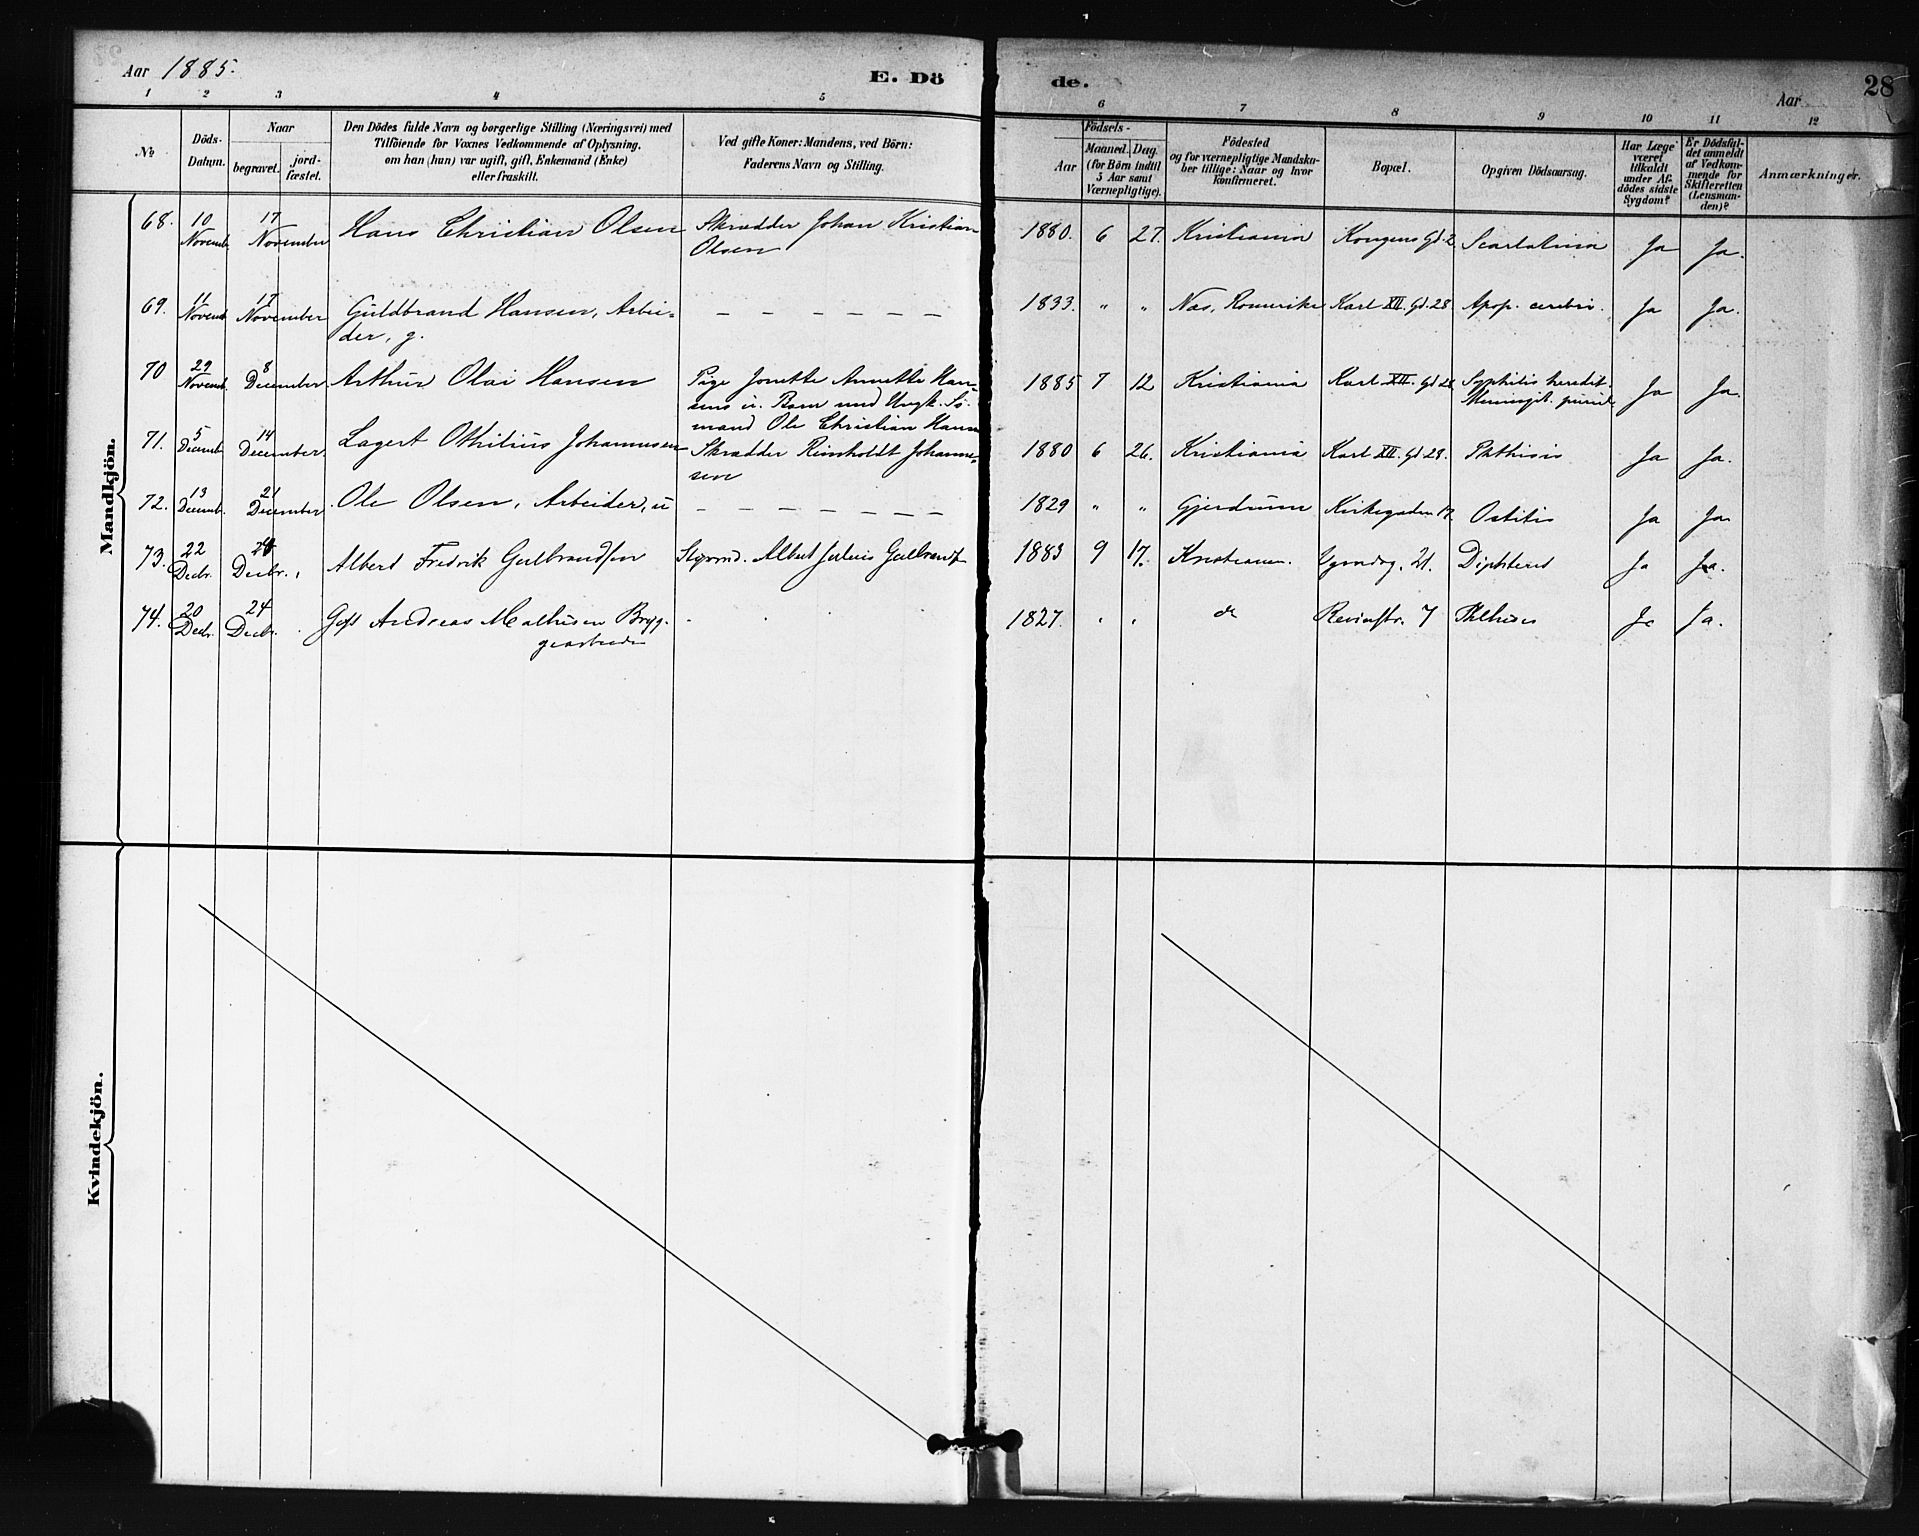 Aar 1885.
E. Dö
de.
Aar
28
1 2 3 4 5 6 7 8 9 10 11 12
No
Döds-Datum.
Naar
begravet.
jord-fæstet.
Den Dödes fulde Navn og borgerlige Stilling (Næringsvei) med
Tilföiende for Voxnes Vedkommende af Oplysning,
om han (hun) var ugift, gift, Enkemand (Enke)
eller fraskilt.
Ved gifte Koner: Mandens, ved Börn:
Faderens Navn og Stilling.
Födsels-
Aar
Maaned. Dag.
(for Börn indtil
5 Aar samt
Værnepligtige).
Födested
og for værnepligtige Mandska-
ber tillige: Naar og hvor
Konfirmeret.
Bopæl.
Opgiven Dödsaarsag.
Har Læge
været
tilkaldt
under Af-
dödes sidste
Sygdom?
Er Dödsfal-
det anmeldt
af Vedkom-
mende for
Skifteretten
(Lensman-
den)?
Anmærkninger.
Mandkjön.
68. 10 Novemb. 17 November Hans Christian Olsen Skrædder Johan Kristian
Olsen
1880. 6 27. Kristiania Kongens Gd. 2 Scarlatina Ja Ja.
69. 11 Novemb 17 November Guldbrand Hansen, Arbei-
der, g.
– – – – – –
1833. " " Næs, Romerike Karl XII. Gd. 28. Apop. cerebri. Ja Ja.
70 29 Novemb. 8 December Arthur Olai Hansen Pige Jonette Annette Han-
sens u. Barn med Ungk. Sö-
mand Ole Christian Hansen
1885 7 12 Kristiania Karl XII. Gd 28. Syphilis heredit.
Meningit. Ja Ja.
71. 5 Decemb 14 December. Lagert Othilius Johannesen Skrædder Reinholdt Johanne-
sen
1880 6 26. Kristiania Karl XII. Gd. 28. Phthisis Ja Ja.
72. 13 Decemb. 21 December. Ole Olsen, Arbeider, u – – – – – – –
1829 " " Gjerdrum Kirkegaden Ostitis Ja Ja.
73. 22 Decbr. Decbr. Albert Fredrik Gulbrandsen Albert Julius Gulbrands
1883 9 17. Kristiania. 21. Diphterit Ja Ja.
74. 20 Decbr. 24 Decbr. Gift Andreas Mathisen Bryg-
gearbeider
1827. " " do 7 Phthisis Ja Ja.
Kvindekjön.